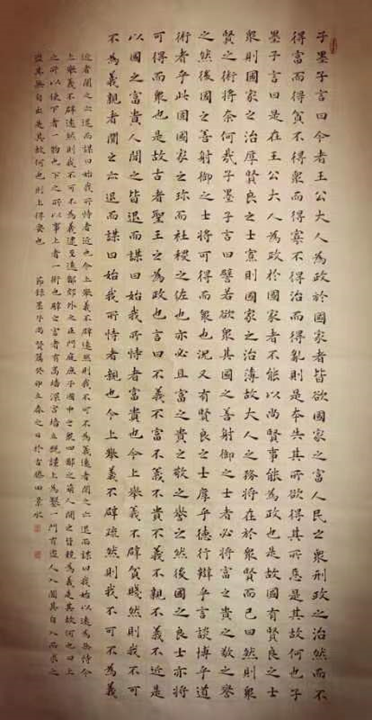 子墨子言曰今者王公大人為政於國家者皆欲國家之富人民之眾刑政之治然而不
得富而得貧不得眾而得寡不得治而得亂則是本失其所欲得其所惡是其故何也子
墨子言曰是在王公大人為政於國家者不能以尚賢事能為政也是故國有賢良之士
眾則國家之治厚賢良之士寡則國家之治薄故大人之務將在於眾賢而已曰然則眾
賢之術將奈何哉子墨子言曰譬若欲眾其國之善射御之士者必將富之貴之敬之譽
之然後國之善射御之士將可得而眾也況又有賢良之士厚乎德行辯乎言談博乎道
術者乎此固國家之珍而社稷之佐也亦必且富之貴之敬之譽之然後國之良士亦將
可得而眾也是故古者聖王之為政也言曰不義不富不義不貴不義不親不義不近是
以國之富貴人聞之皆退而謀曰始我所恃者富貴也今上舉義不辟貧賤然則我不可
不為義親者聞之亦退而謀曰始我所恃者親也今上舉義不辟疏然則我不可不為義
近者聞之亦退而謀曰始我所恃者近也今上舉義不辟遠然則我不可不為義遠者聞之亦退而謀曰我始以遠為無恃今
上舉義不辟遠然則我不可不為義逮至遠鄙郊外之臣門庭庶子國中之眾四鄙之萌人聞之皆競為義是其故何也曰上
之所以使下者一物也下之所以事上者一術也譬之富者有高牆深宮牆立既謹上為鑿一門有盜人入闔其自入而求之
盜其無自出是其故何也則上得要也
節錄墨子尚賢篇癸卯立春之日於古